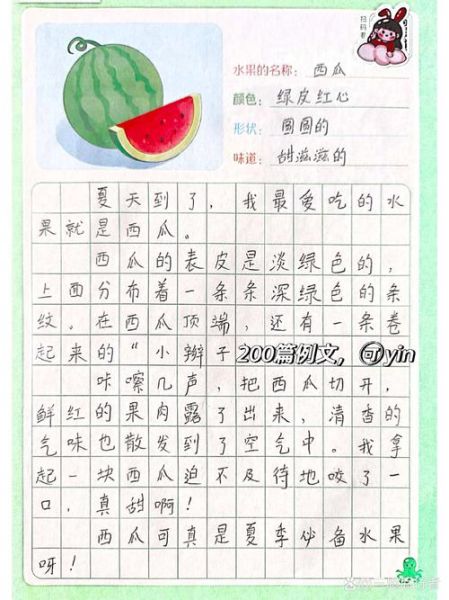 水果的名称：西瓜
颜色：绿皮红心
形状：圆圆的
味道：甜滋滋的
夏天到了，我最爱吃的水
果就是西瓜。
西瓜的表皮是淡绿色的，
上面分布着一条条深绿色的条
纹。在西瓜顶端，还有一条卷
起来的“小辫子
200篇例文，可yin
咔嚓几声，把西瓜切开，
鲜红的果肉露了出来，清香的
气味也散发到了空气中。我拿
起一块西瓜迫不及待地咬了一
口，真甜啊！
西瓜可真是夏季必备水果
呀！